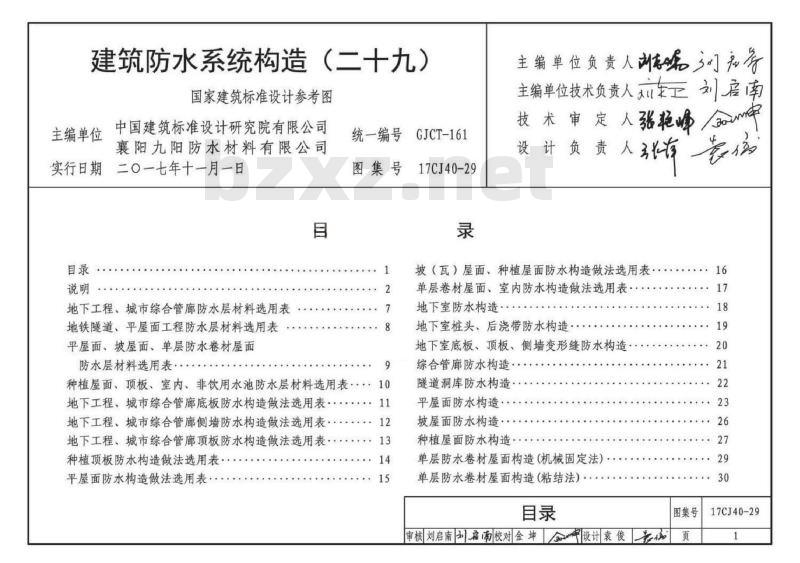 建筑防水系统构造（二十九）
国家建筑标准设计参考图
主编单位 中国建筑标准设计研究院有限公司
襄阳九阳防水材料有限公司
统一编号 GJCT-161
实行日期 二〇一七年十一月一日
图集号 17CJ40-29
主编单位负责人
主编单位技术负责人 刘启南
技术审定人
设计负责人
bzxz.net
目 录
目录 1
说明 2
地下工程、城市综合管廊防水层材料选用表 7
地铁隧道、平屋面工程防水层材料选用表 8
平屋面、坡屋面、单层防水卷材屋面
防水层材料选用表 9
种植屋面、顶板、室内、非饮用水池防水层材料选用表 10
地下工程、城市综合管廊底板防水构造做法选用表 11
地下工程、城市综合管廊侧墙防水构造做法选用表 12
地下工程、城市综合管廊顶板防水构造做法选用表 13
种植顶板防水构造做法选用表 14
平屋面防水构造做法选用表 15
坡（瓦）屋面、种植屋面防水构造做法选用表 16
单层卷材屋面、室内防水构造做法选用表 17
地下室防水构造 18
地下室桩头、后浇带防水构造 19
地下室底板、顶板、侧墙变形缝防水构造 20
综合管廊防水构造 21
隧道洞库防水构造 22
平屋面防水构造 23
坡屋面防水构造 26
种植屋面防水构造 27
单层防水卷材屋面构造(机械固定法) 29
单层防水卷材屋面构造(粘结法) 30
目录 图集号 17CJ40-29
审核 刘启南 刘启南 校对 金坤 设计 袁俊 页 1